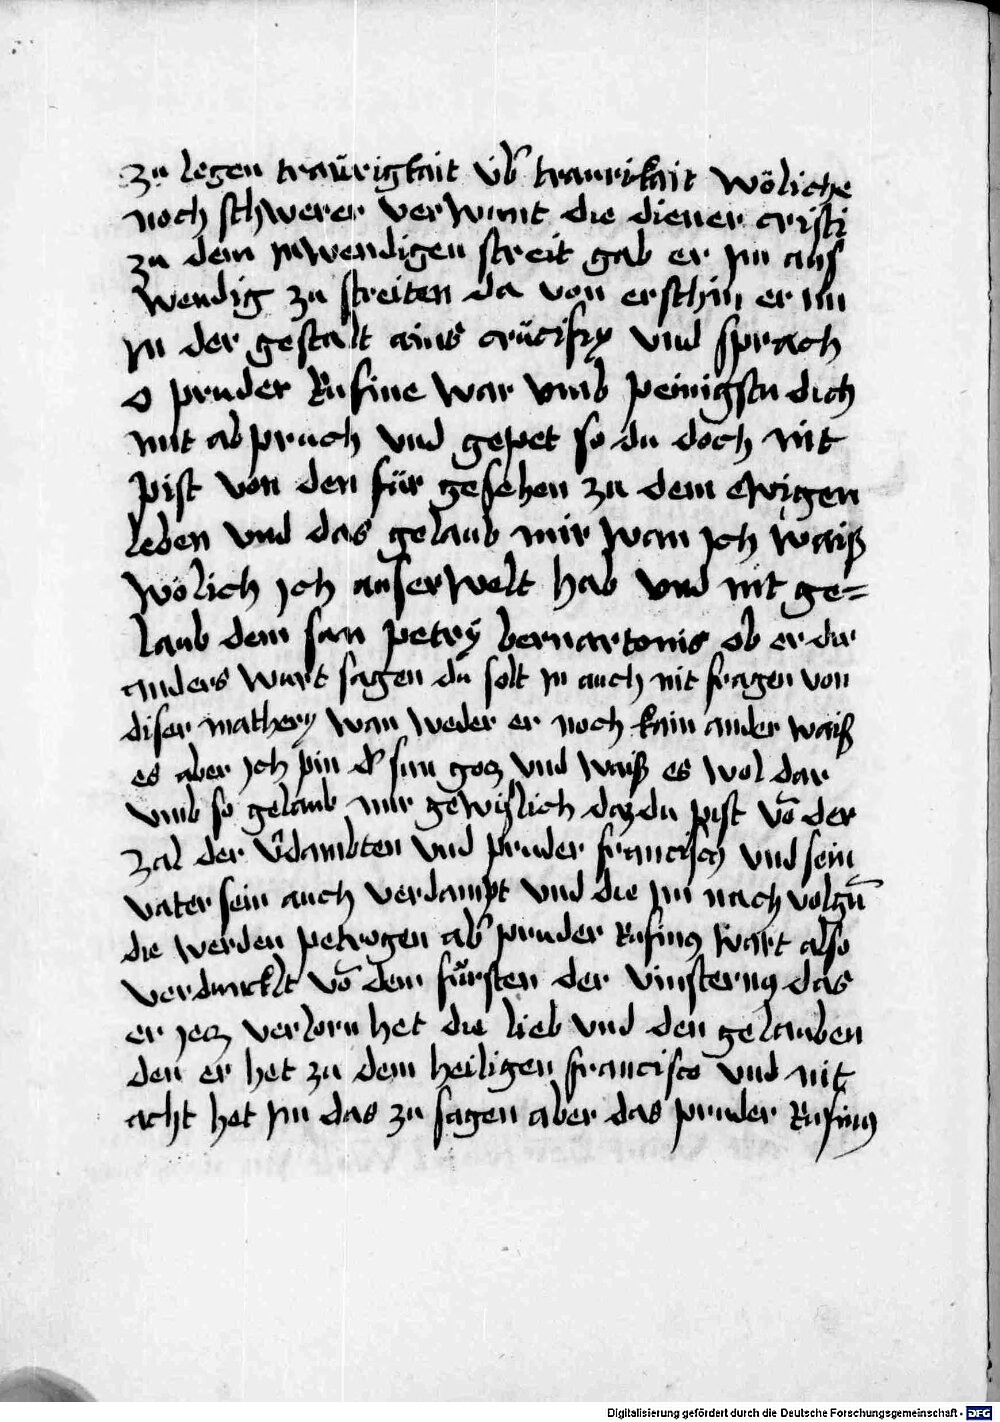 zu legen traürigkait üb̄ traurikait wöliche
noch schwerer verwunt die diener cristi
zu dem inwendigen streit gab er im aus
wendig zu streiten da von erschin er im
in der gestalt ains crücifix und sprach
o pruder Rufine war umb peinigstu dich
mit abpruch und gepet so du doch nit
pist von den für gesehen zu dem ewigen
leben und das gelaub mir wan ich waiß
wölich ich auserwelt hab und nit ge=
laub dem sun petry bernartonis ob er dir
anders wurt sagen du solt in auch nit fragen von
diser mathery wan weder er noch kain ander waiß
es aber ich pin d̄ sun gocz und waiß es wol dar
umb so gelaub mir gewislich daz du pist vō der
zal der v̄dambten und pruder francisco und sein
vater sein auch verdampt und die im nach volgn̄
die werden petrogen ab̄ pruder Rufinus wart also
verdunklt vō dem fürsten der vinsternus das
er jecz verlorn het die lieb und den gelauben
den er het zu dem heiligen francisco und nit
acht het im das zu sagen aber das pruder Rufinus
Digitalisierung gefördert durch die Deutsche Forschungsgemeinschaft - DFG